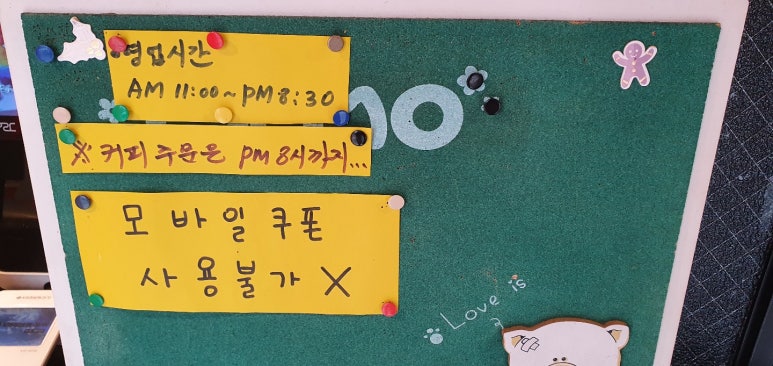 영업시간
AM 11:00~PM 8:30
※ 커피 주문은 PM 8시까지...
모바일쿠폰
사용불가 X
Love is